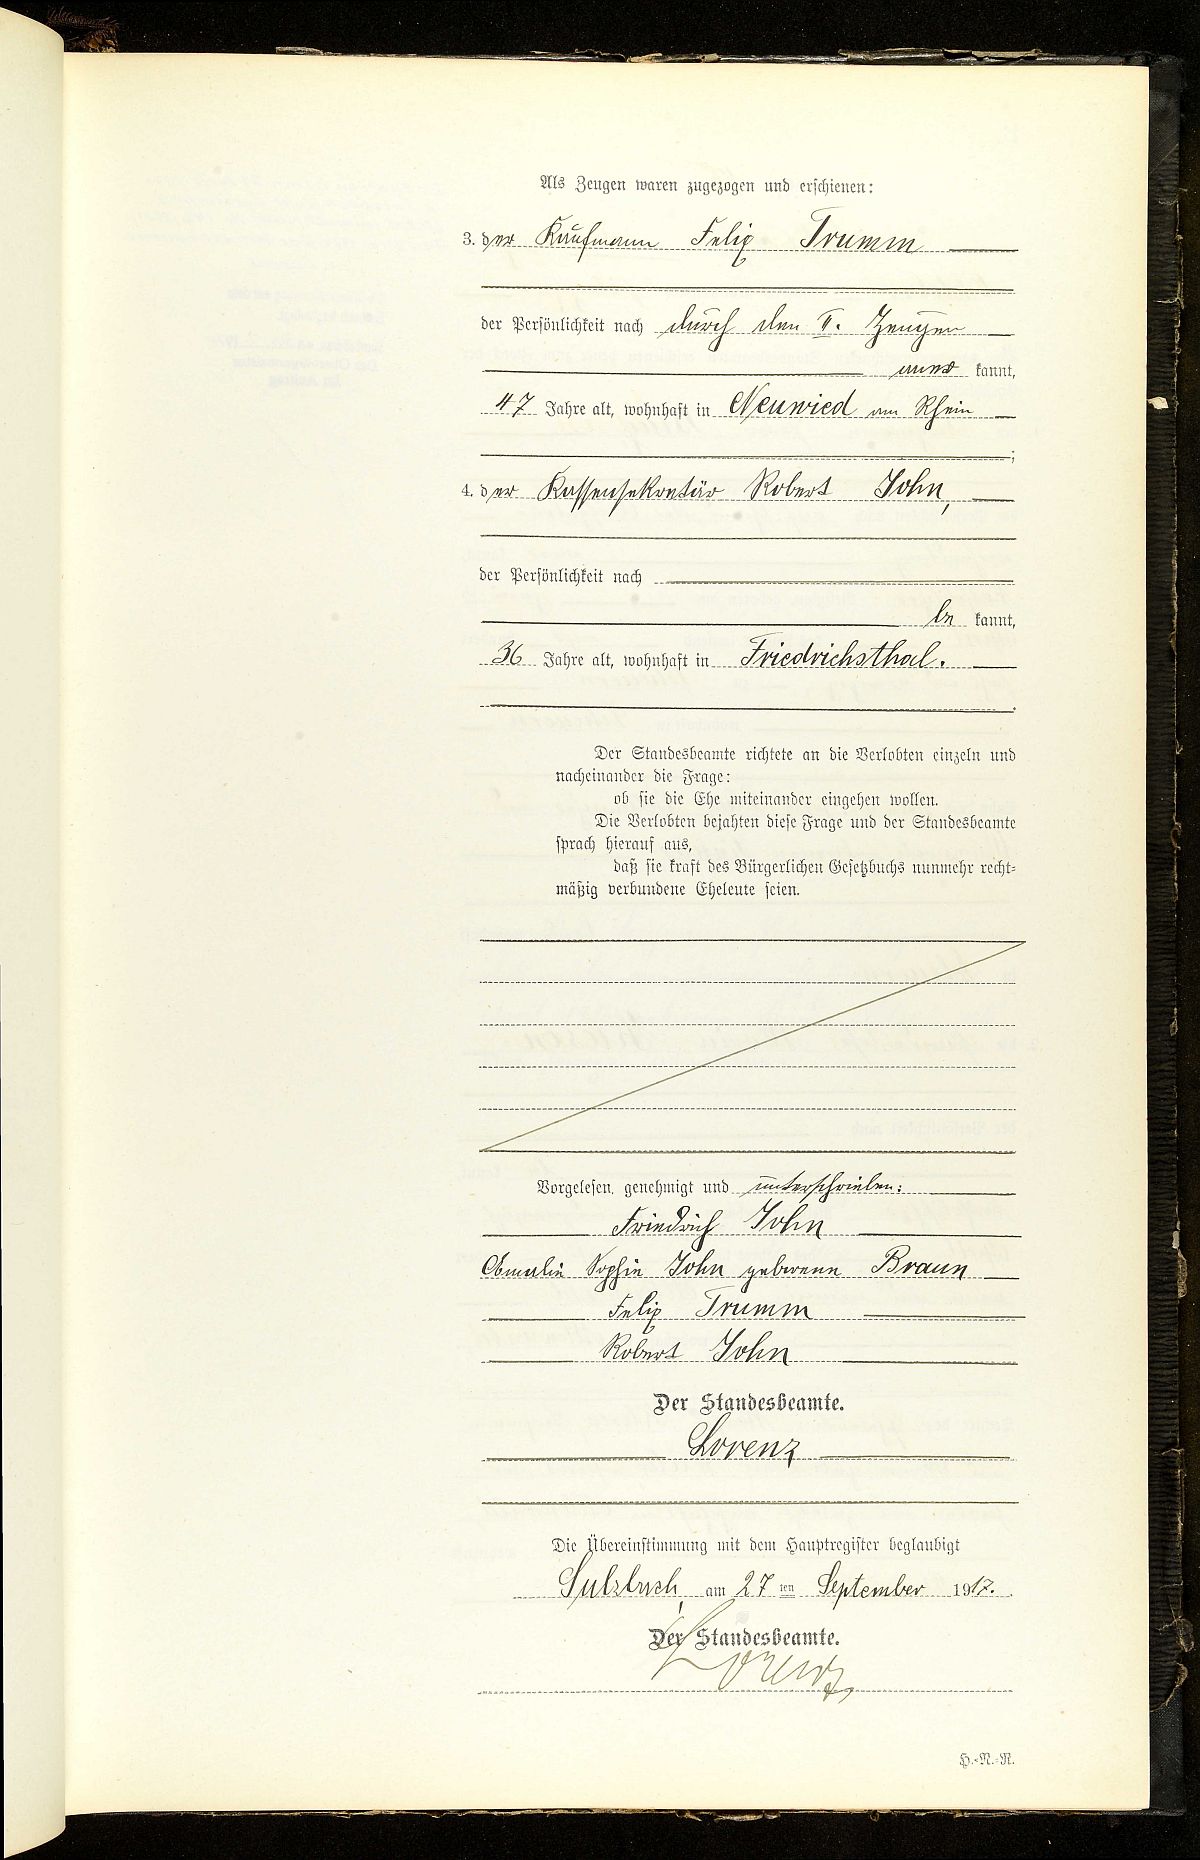 Als Zeugen waren zugezogen und erschienen:
3. der Kaufmann Felix Trumm
der Persönlichkeit nach durch den II. Zeugen
aner kannt,
47 Jahre alt, wohnhaft in Neuwied am Rhein
;
4. der Kassensekretär Robert John,
der Persönlichkeit nach
be kannt,
36 Jahre alt, wohnhaft in Friedrichsthal.
.
Der Standesbeamte richtete an die Verlobten einzeln und
nacheinander die Frage:
ob sie die Ehe miteinander eingehen wollen.
Die Verlobten bejahten diese Frage und der Standesbeamte
sprach hierauf aus,
daß sie kraft des Bürgerlichen Gesetzbuchs nunmehr recht-
mäßig verbundene Eheleute seien.
Vorgelesen, genehmigt und unterschrieben:
Friedrich John
Amalie Sophie John geborene Braun
Felix Trumm
Robert John
Der Standesbeamte.
Lorenz
Die Übereinstimmung mit dem Hauptregister beglaubigt
Sulzbach, am 27 ten September 1917.
Der Standesbeamte.
Lorenz
H.-N.-R.